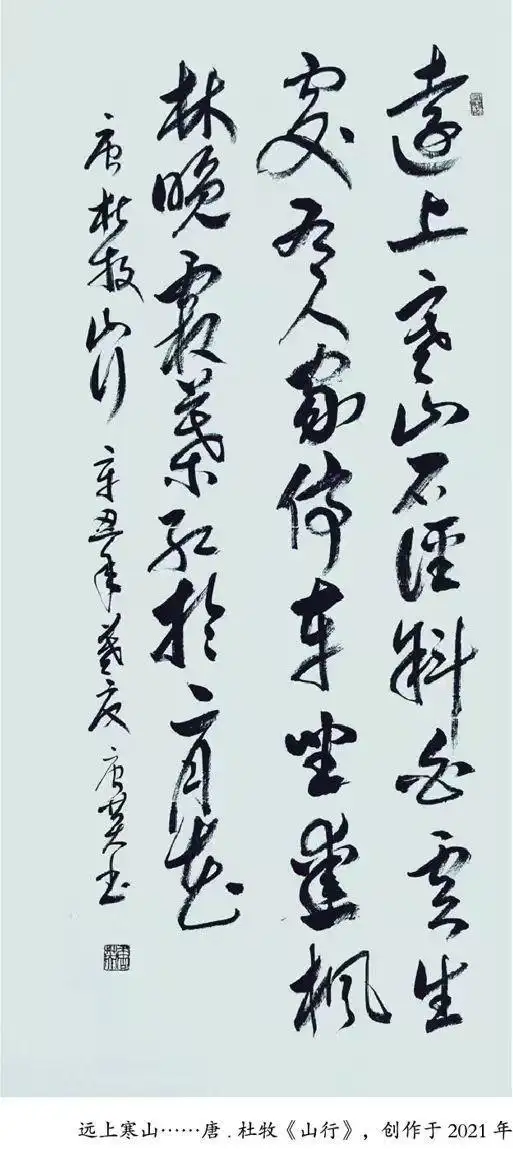 遠上寒山石徑斜白雲生
處有人家停車坐愛楓
林晚霜葉紅於二月花
唐杜牧山行 辛丑年 唐英玉
远上寒山……唐 . 杜牧《山行》，创作于 2021 年